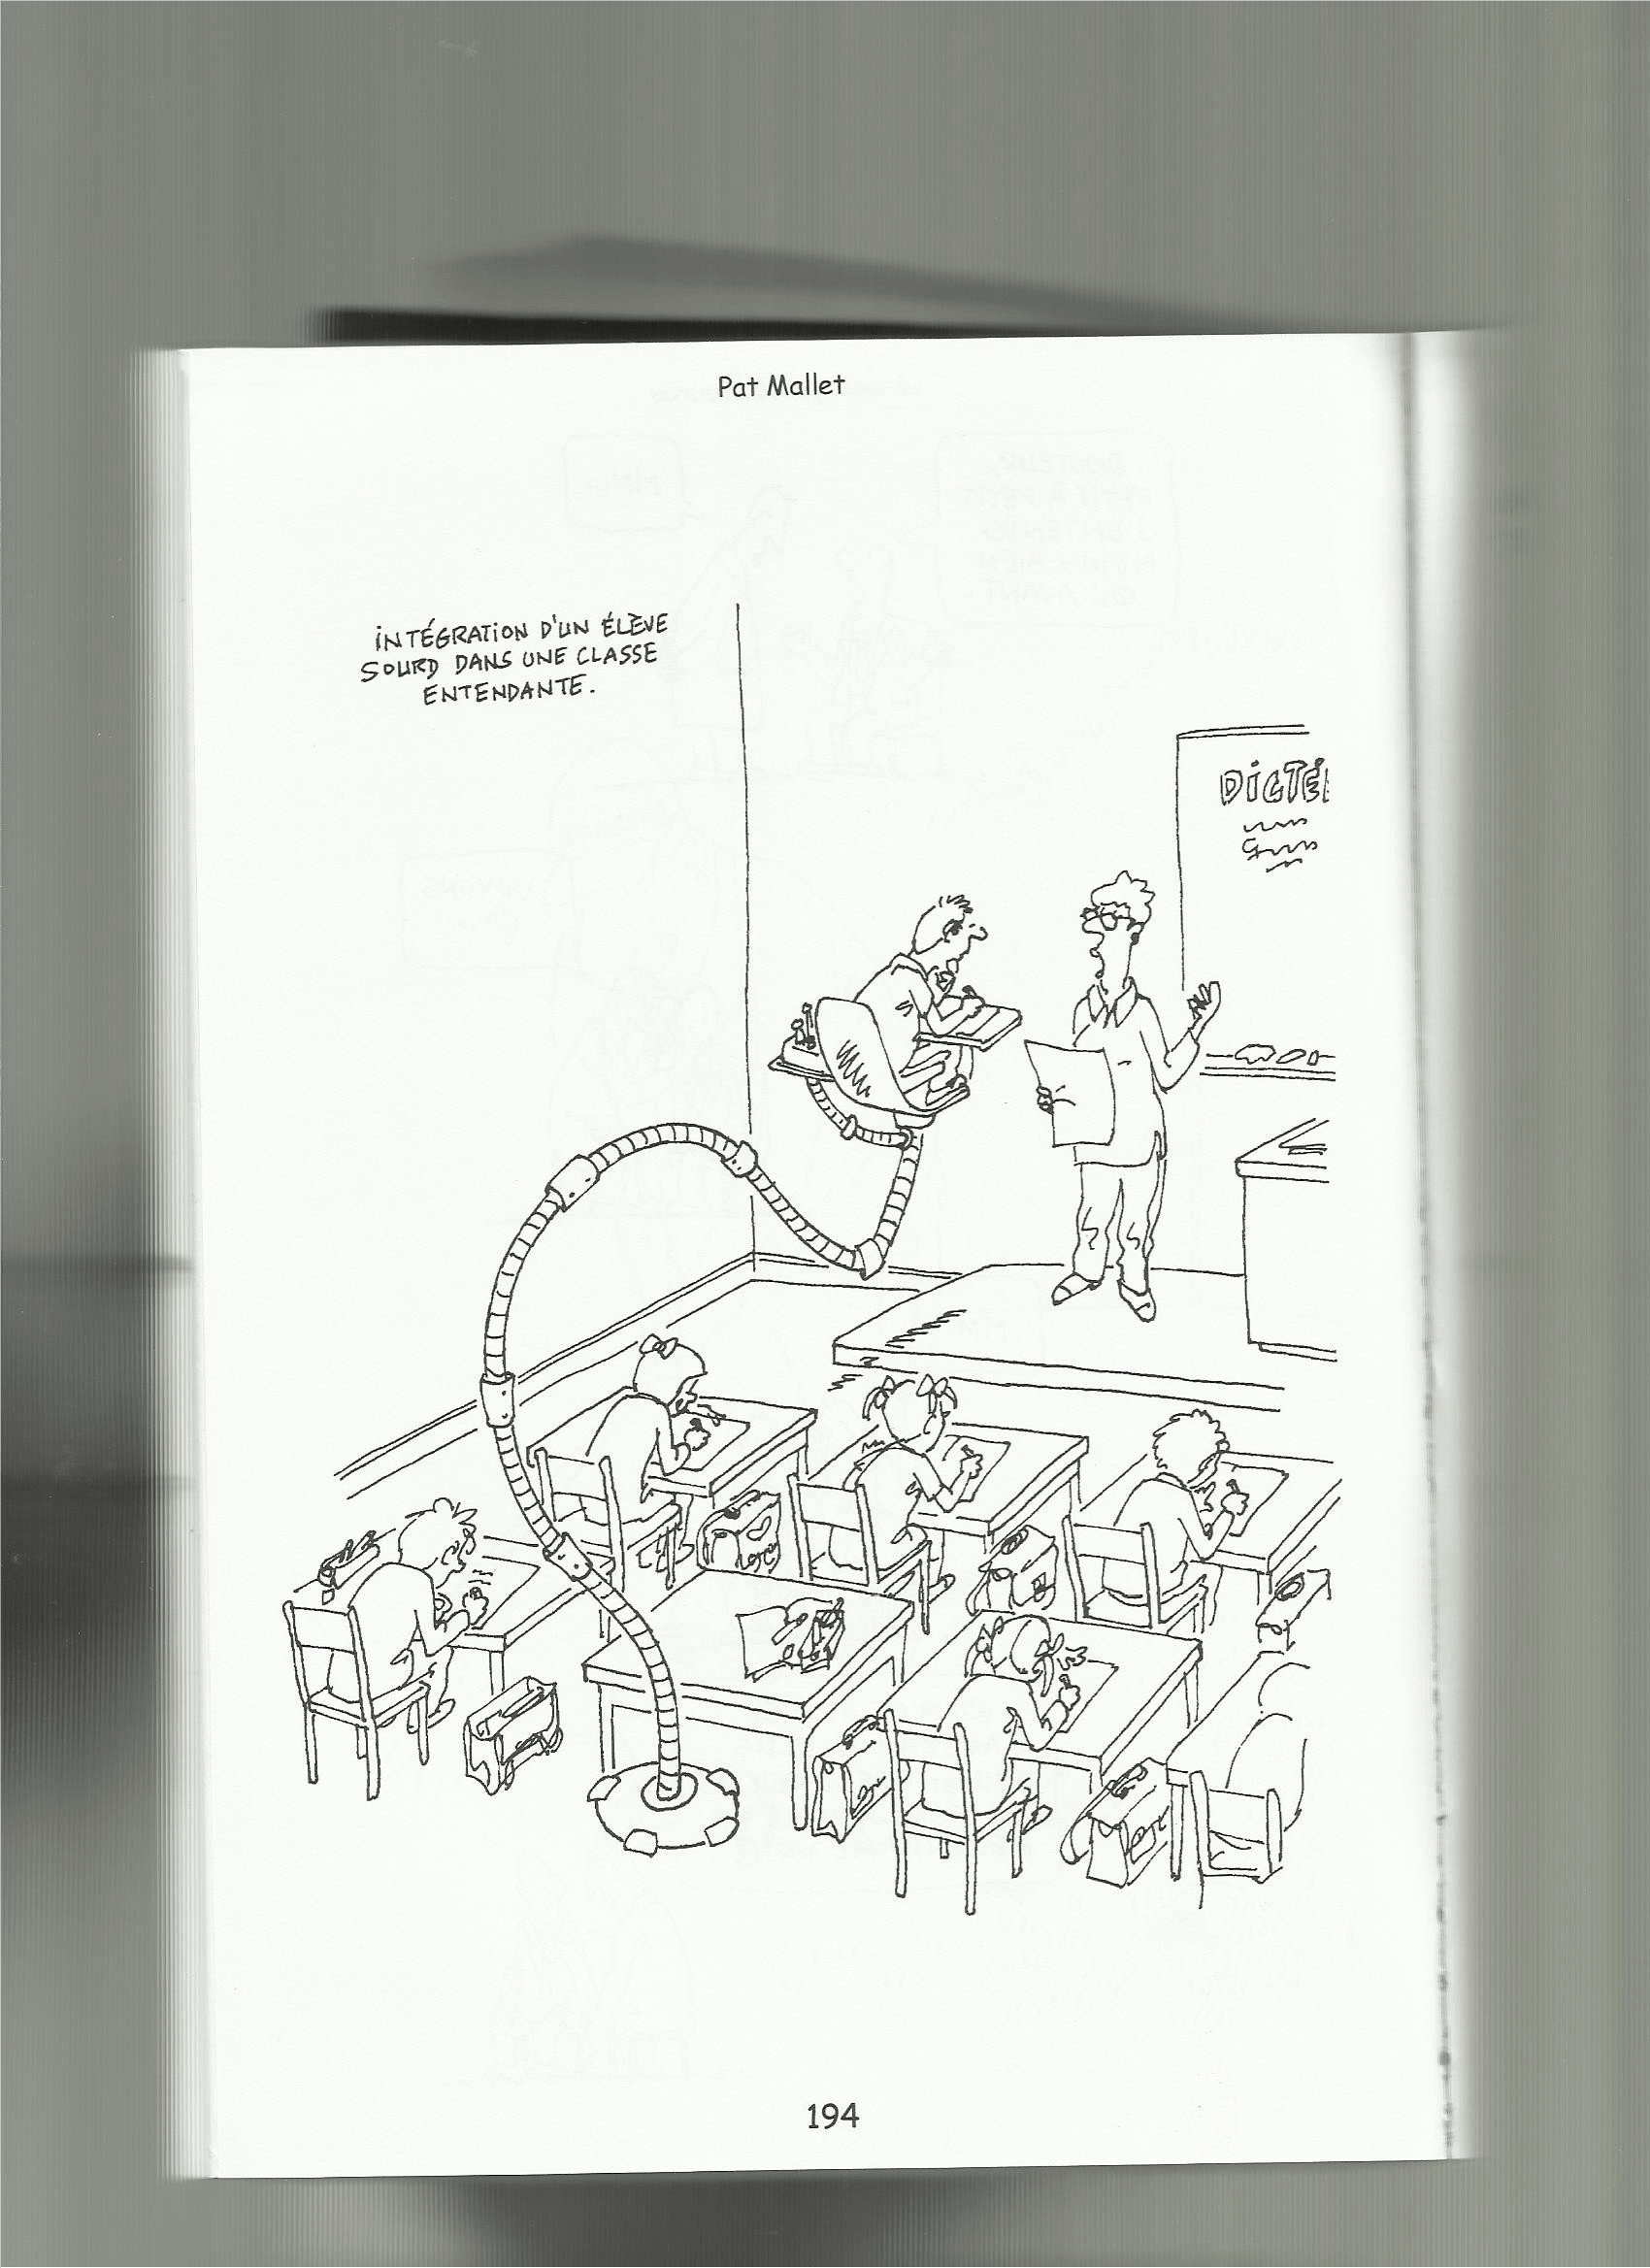 Pat Mallet
iNTÉGRATiON D'UN ÉLÈVE
SOURD DANS UNE CLASSE
ENTENDANTE.
DiCTÉ
194